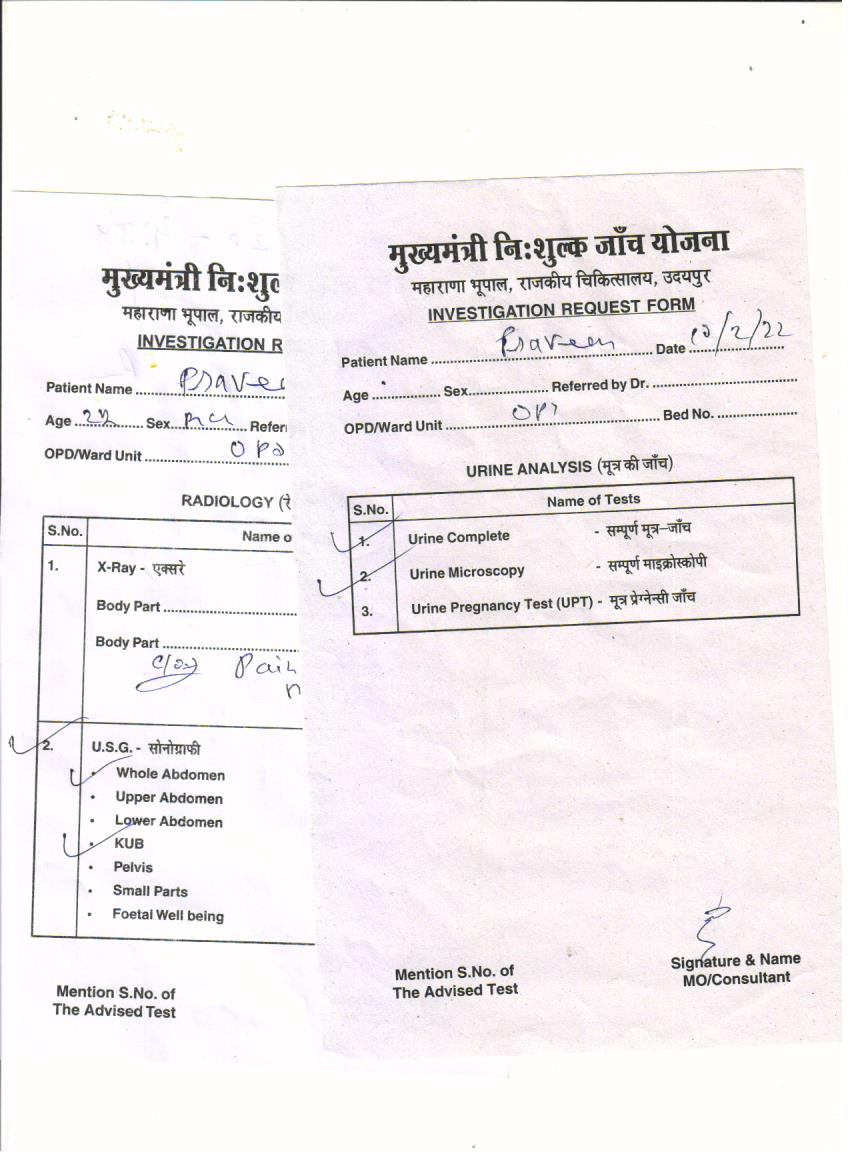 मुख्यमंत्री नि:शुल्क जाँच योजना
महाराणा भूपाल, राजकीय चिकित्सालय, उदयपुर
INVESTIGATION REQUEST FORM
Patient Name Praveen Date 10/2/22
Age Sex Referred by Dr.
OPD/Ward Unit OPD Bed No.
URINE ANALYSIS (मूत्र की जाँच)
S.No. Name of Tests
1. Urine Complete - सम्पूर्ण मूत्र-जाँच
2. Urine Microscopy - सम्पूर्ण माइक्रोस्कोपी
3. Urine Pregnancy Test (UPT) - मूत्र प्रेग्नेन्सी जाँच
Mention S.No. of
The Advised Test
Signature & Name
MO/Consultant
मुख्यमंत्री नि:शुल
महाराणा भूपाल, राजकीय
INVESTIGATION R
Patient Name Pravee
Age Sex Referr
OPD/Ward Unit OPD
RADIOLOGY (रे
S.No. Name o
1. X-Ray - एक्सरे
Body Part
Body Part
Pain
2. U.S.G. - सोनोग्राफी
• Whole Abdomen
• Upper Abdomen
• Lower Abdomen
• KUB
• Pelvis
• Small Parts
• Foetal Well being
Mention S.No. of
The Advised Test